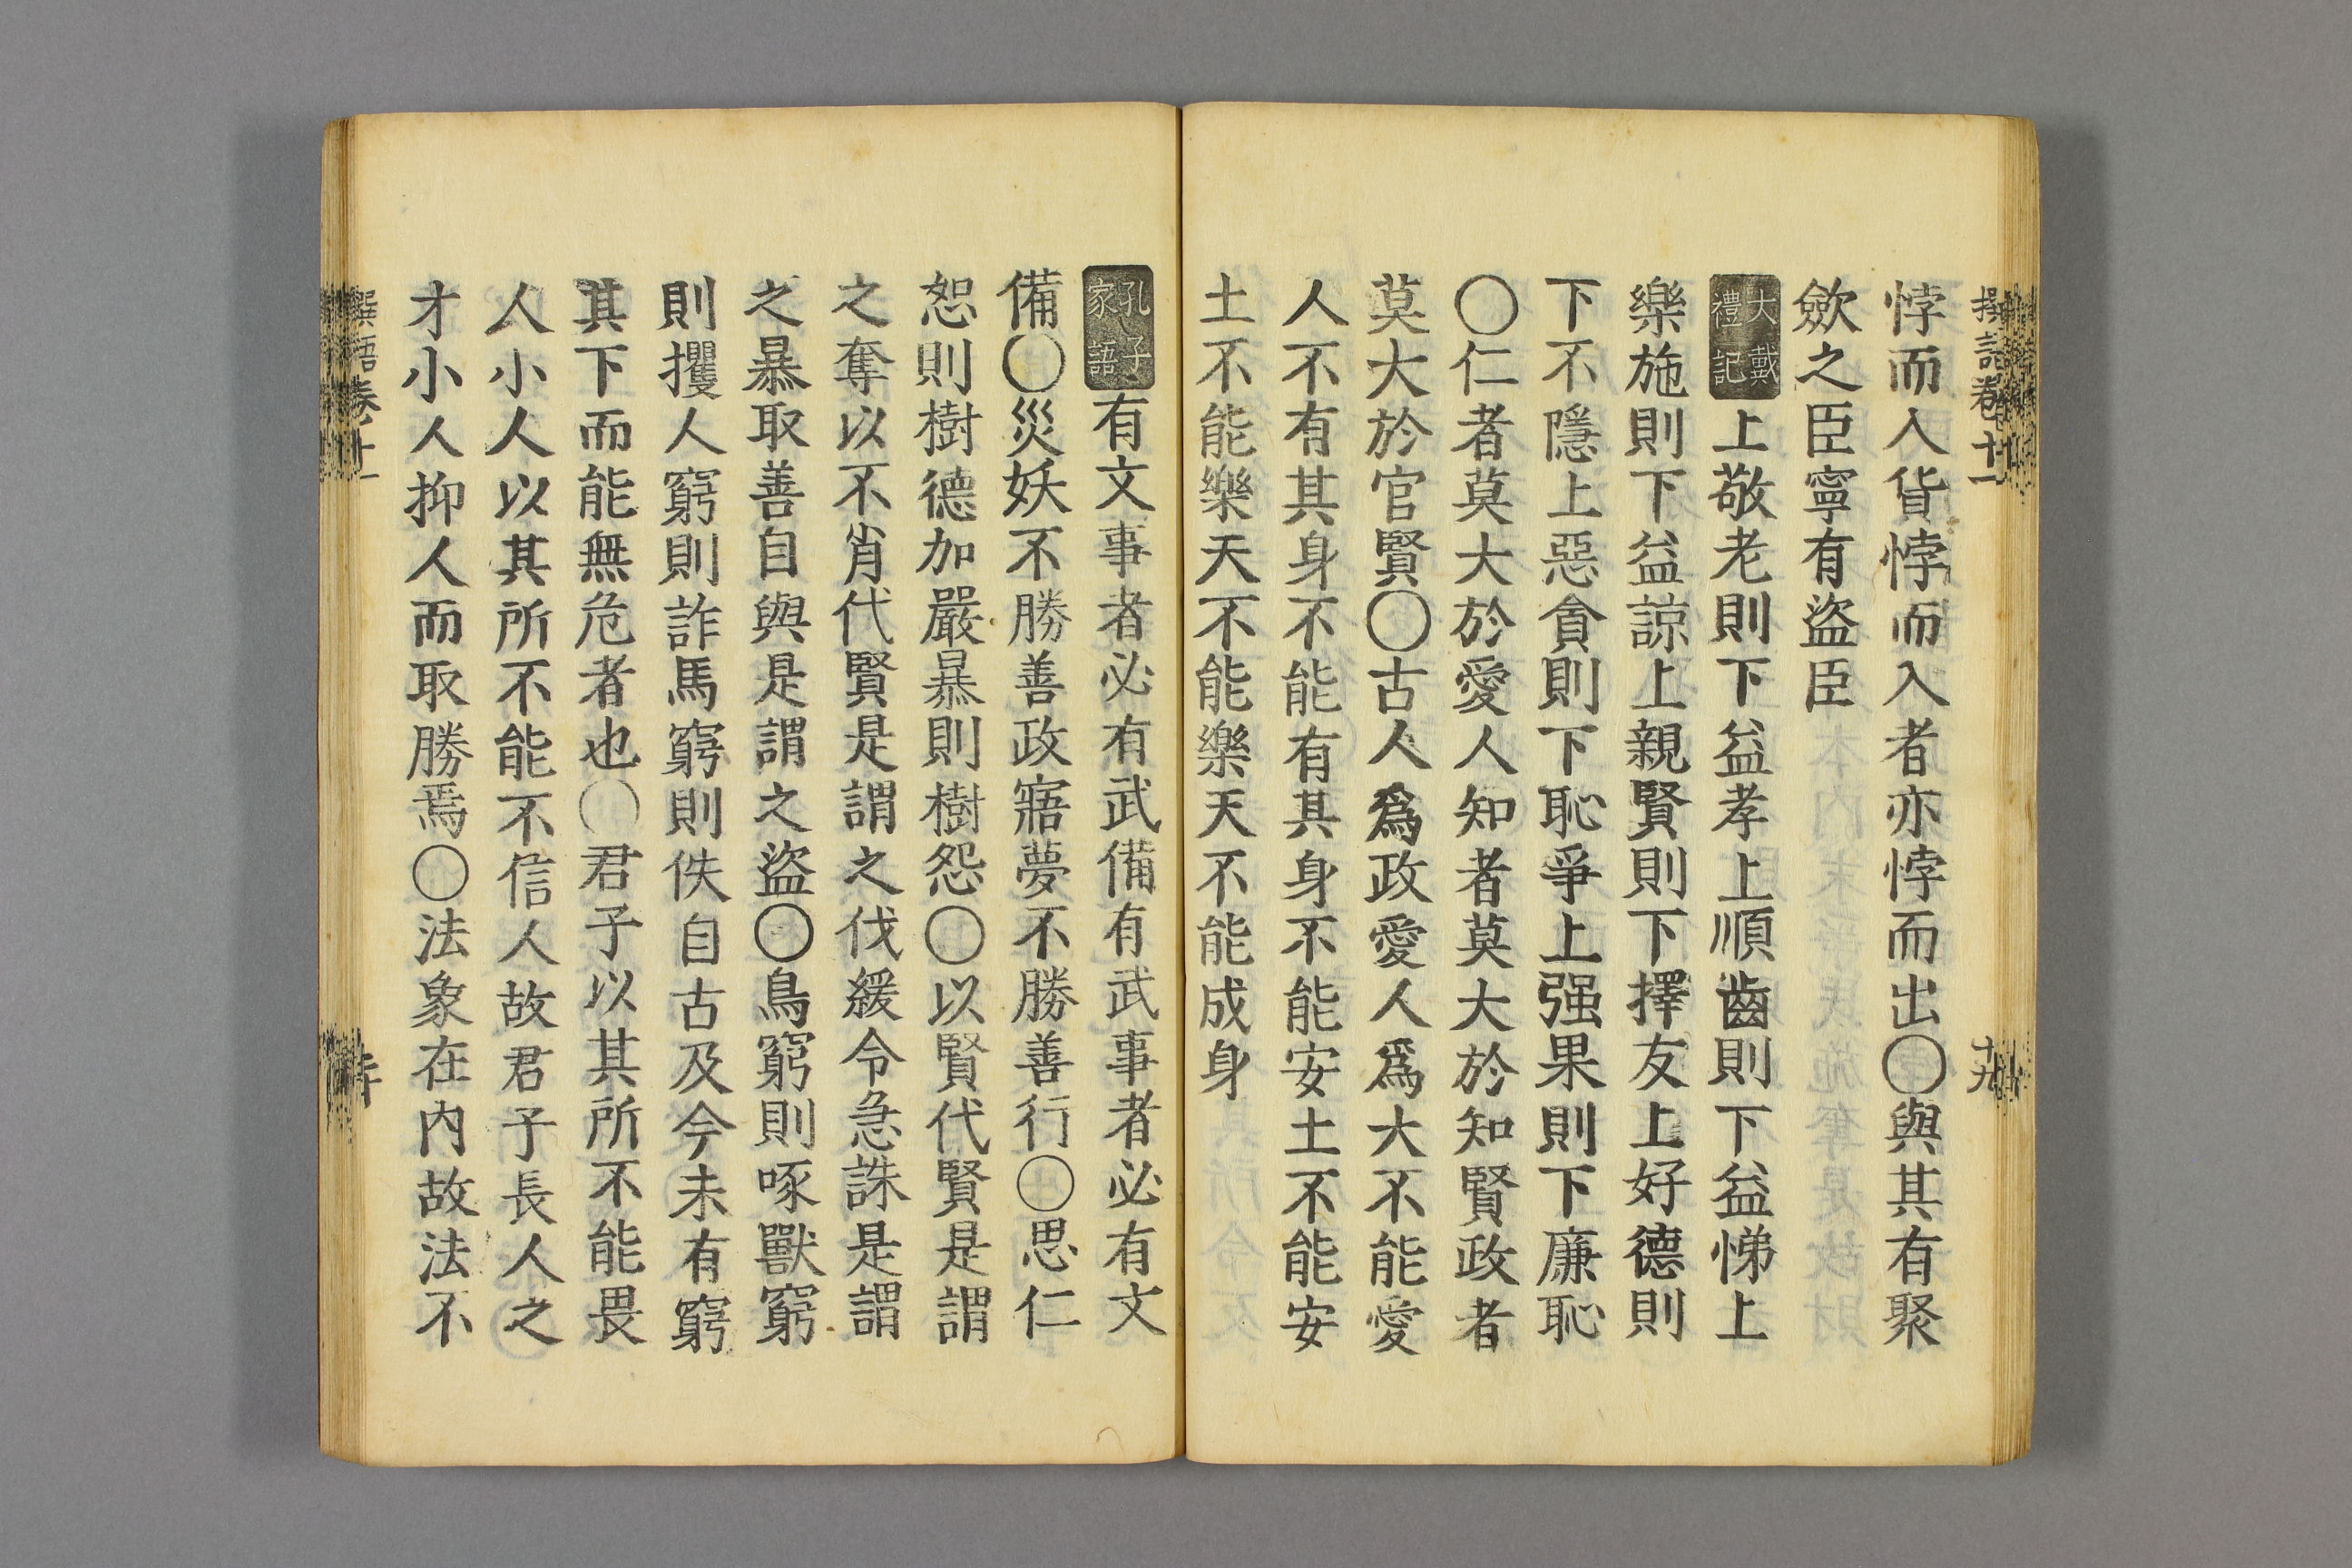 撰語卷十一
十九
悖而入貨悖而入者亦悖而出〇與其有聚
歛之臣寧有盜臣
大戴禮記上敬老則下益孝上順齒則下益悌上
樂施則下益諒上親賢則下擇友上好德則
下不隱上惡貪則下恥爭上强果則下廉恥
〇仁者莫大於愛人知者莫大於知賢政者
莫大於官賢〇古人爲政愛人爲大不能愛
人不有其身不能有其身不能安土不能安
土不能樂天不能樂天不能成身
孔子家語有文事者必有武備有武事者必有文
備〇災妖不勝善政寤夢不勝善行〇思仁
恕則樹德加嚴暴則樹怨〇以賢代賢是謂
之奪以不肖代賢是謂之伐緩令急誅是謂
之暴取善自與是謂之盜〇鳥窮則啄獸窮
則攫人窮則詐馬窮則佚自古及今未有窮
其下而能無危者也〇君子以其所不能畏
人小人以其所不能不信人故君子長人之
才小人抑人而取勝焉〇法象在内故法不
撰語卷十一